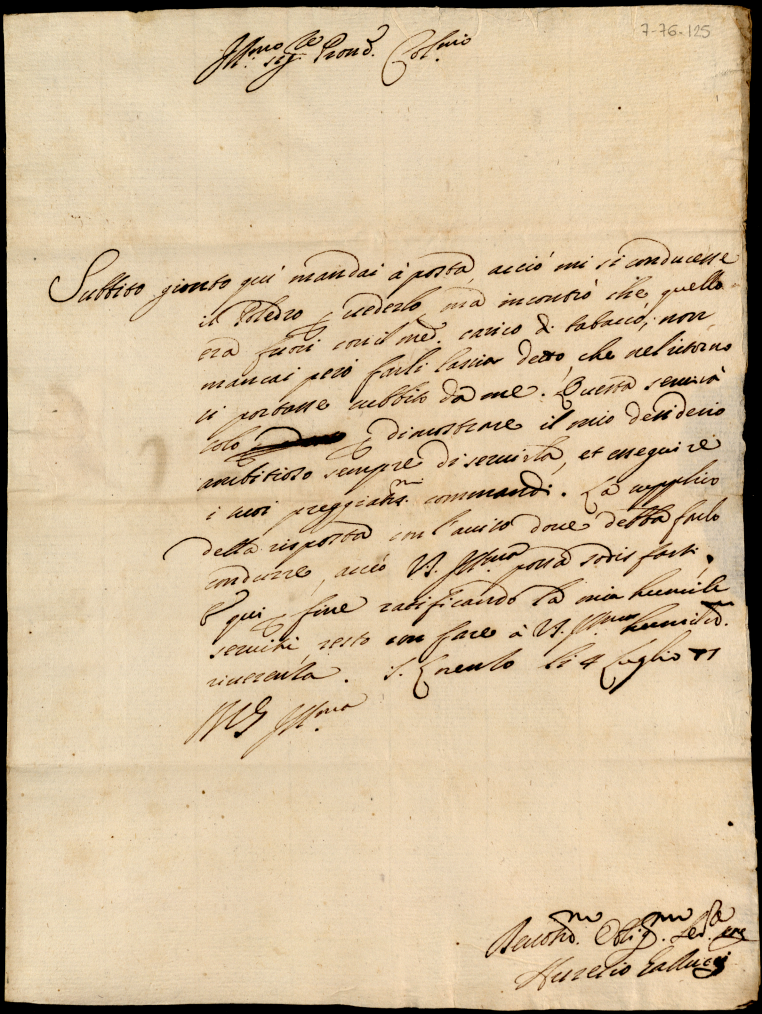 7-76-125
Ill.mo Sig. Pron. Col.mo
Subbito gionto quì mandai à posta, acciò mi si conducesse
il Poledro p vederlo, mà incontrò che quello
era fuori con il med. carico di tabacco, non
mancai però farli lasciar detto che nel ritorno
ci portasse subbito da me. Questa servirà
solo p dimostrare il mio desiderio
ambitioso sempre di servirla, et esseguire
i suoi preggiatis.mi commandi. La supplico
della risposta con l'aviso dove debba farlo
condurre, acciò V.S. Ill.ma possa sodisfarsi,
E qui p fine ratificando la mia humile
servitù resto con fare à V.S. Ill.ma humiliss.
riverenza. S. Lorenzo li 4 Luglio
VS Ill.ma
Devotis.mo Oblig.mo
Aurelio Gallucci